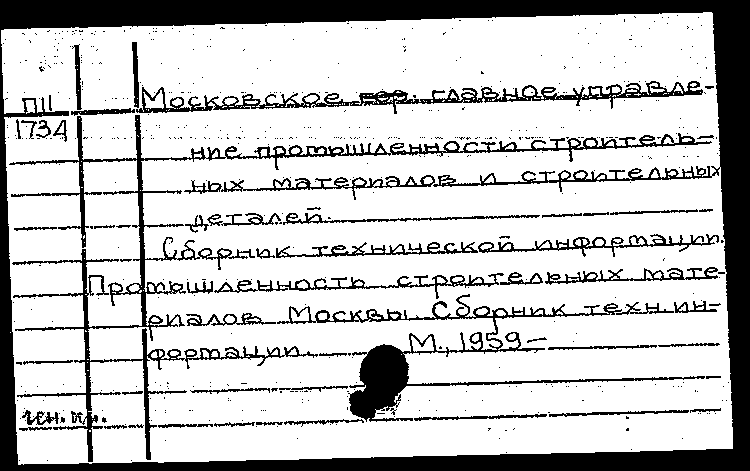 П11
173д
Московское гор. главное управле-
ние промышленности строитель-
ных материалов и строительных
деталей.
Сборник технической информации.
Промышленность строительных мате-
риалов Москвы. Сборник техн. ин-
формации. М., 1959—
ген. к.